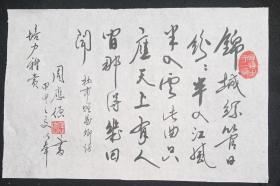 錦城絲管日
紛々半入江風
半入雲此曲只
應天上有人
間那得幾回
聞
杜甫贈花卿詩
周應德書
培力雅賞